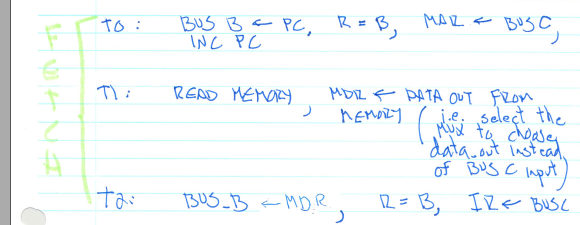 FETCH
T0: BUS B ← PC, R = B, MAR ← BUSC,
INC PC
T1: READ MEMORY, MDR ← DATA OUT FROM
MEMORY (i.e. select the
MUX to choose
data_out instead
of BUS C input)
T2: BUS_B ← MDR, R = B, IR ← BUSC